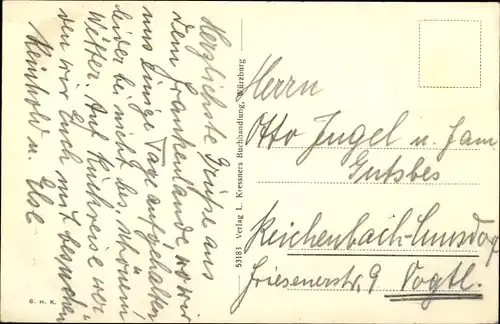 Herzlichste Grüße aus
dem Frankenlande wo wir
uns einige Tage aufgehalten
leider bei nicht bes. schönem
Wetter. Auf Rückreise wer-
den wir Euch mit besuchen
Reinhold u. Else
53183 Verlag L. Kressners Buchhandlung, Würzburg
B. H. K.
Herrn
Otto Jugel u. Fam
Gutsbes
Reichenbach-Cunsdorf
Friesenerstr. 9 Vogtl.